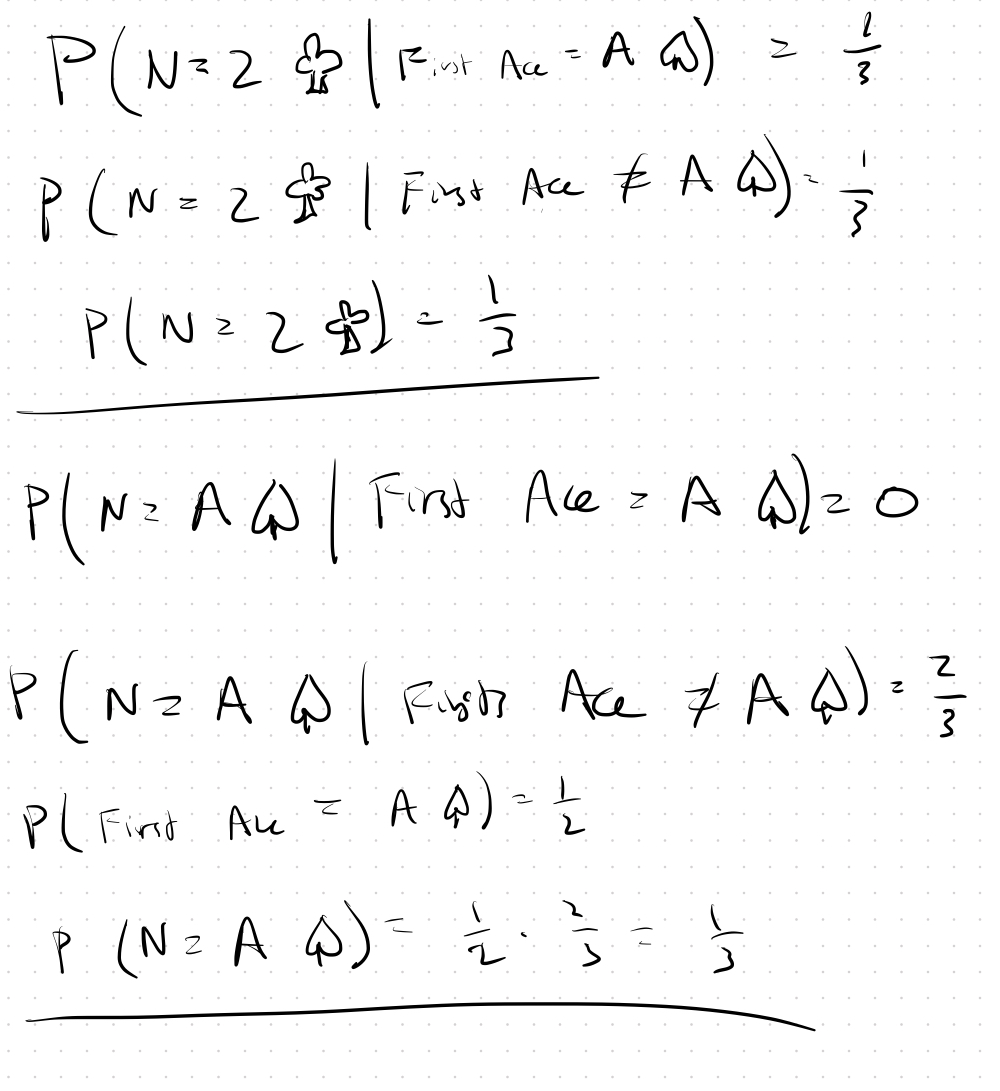 P(N=2 ♧ | First Ace = A ♤) = 1/3
P(N=2 ♧ | First Ace ≠ A ♤) = 1/3
P(N=2 ♧) = 1/3
P(N= A ♤ | First Ace = A ♤) = 0
P(N= A ♤ | First Ace ≠ A ♤) = 2/3
P( First Ace = A ♤) = 1/2
P (N= A ♤) = 1/2 · 2/3 = 1/3